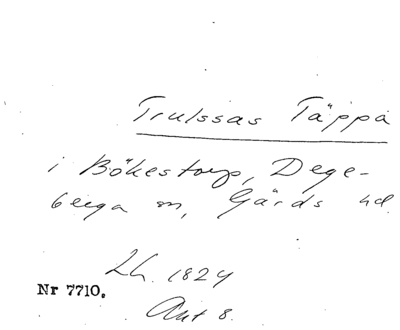 Trulssas Täppa
i Bökestorp, Dege-
berga sn, Gärds hd.
Lh. 1824
Nr 7710.
Akt 8.